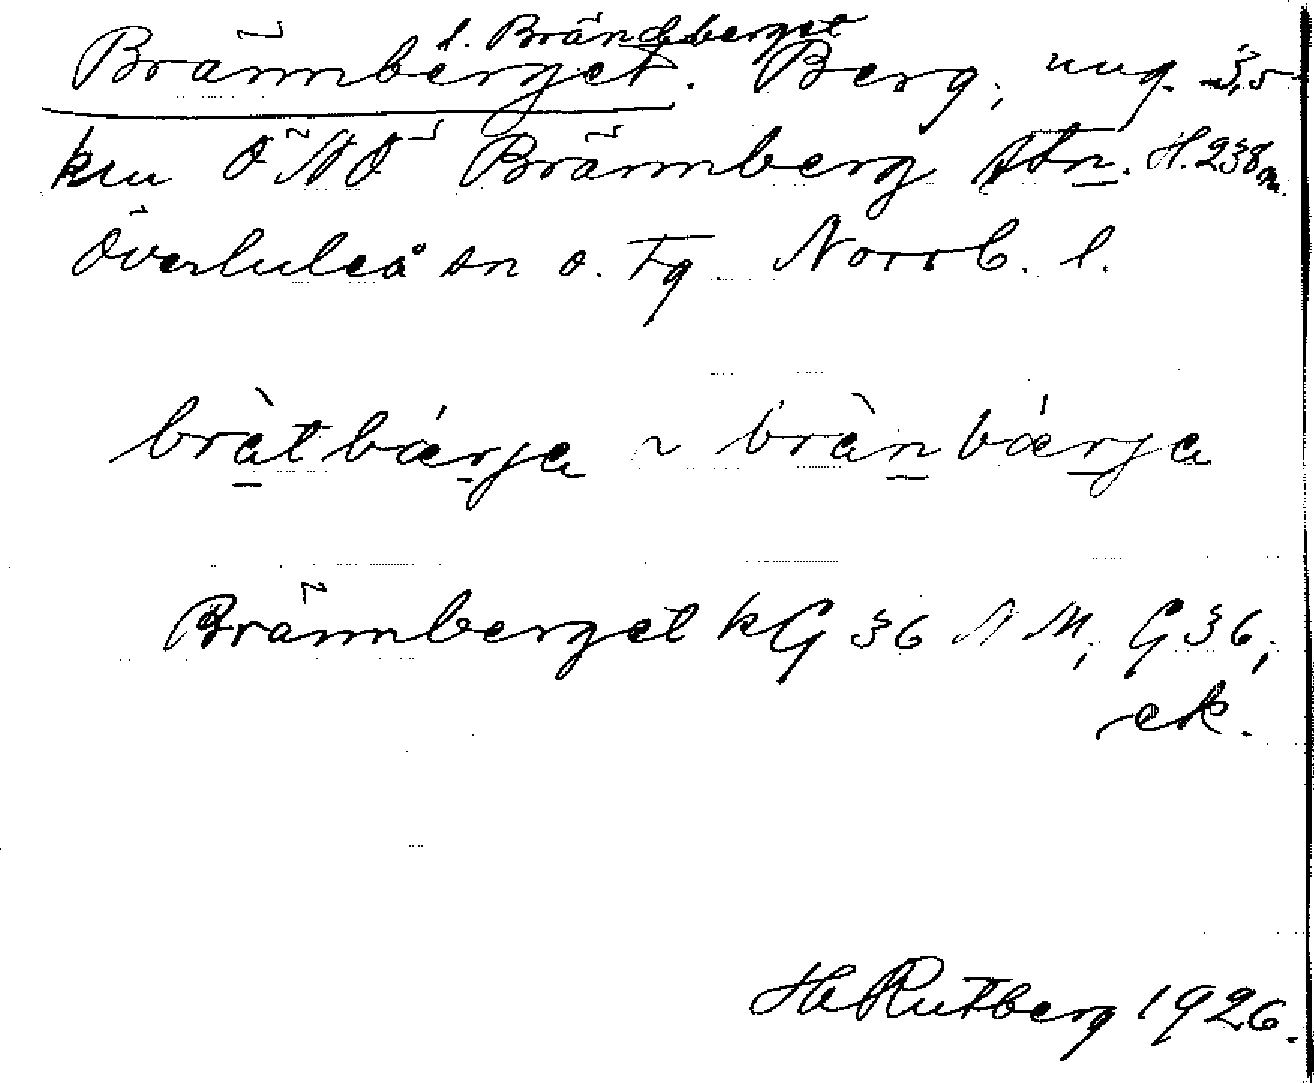 l. Brändberget
Brännberget. Berg, ung. 3,5
km ÖNÖ Brännberg stn. H. 238 m.
Överluleå sn o. tg Norrb. l.
bràtbárja ~ brànbárja
Brännberget kG 36 NM, G 36,
ek.
H Rutberg 1926.